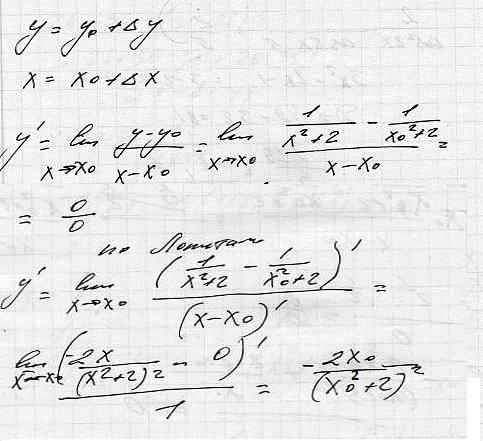 y = y₀ + Δy
x = x₀ + Δx
y' = lim_{x→x₀} (y-y₀)/(x-x₀) = lim_{x→x₀} (1/(x²+2) - 1/(x₀²+2))/(x-x₀) =
= 0/0
по Лопиталю
y' = lim_{x→x₀} (1/(x²+2) - 1/(x₀²+2))'/(x-x₀)' =
lim_{x→x₀} (-2x/(x²+2)² - 0)'/1 = -2x₀/(x₀²+2)²